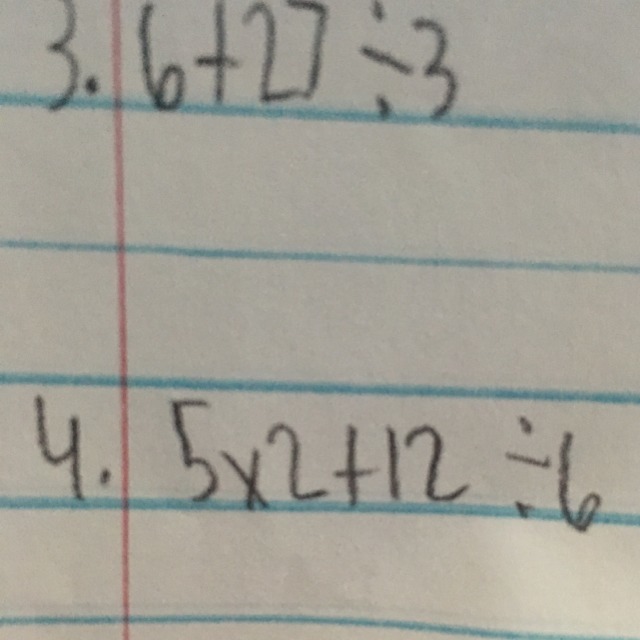 3. 6+27÷3
4. 5x2+12÷6